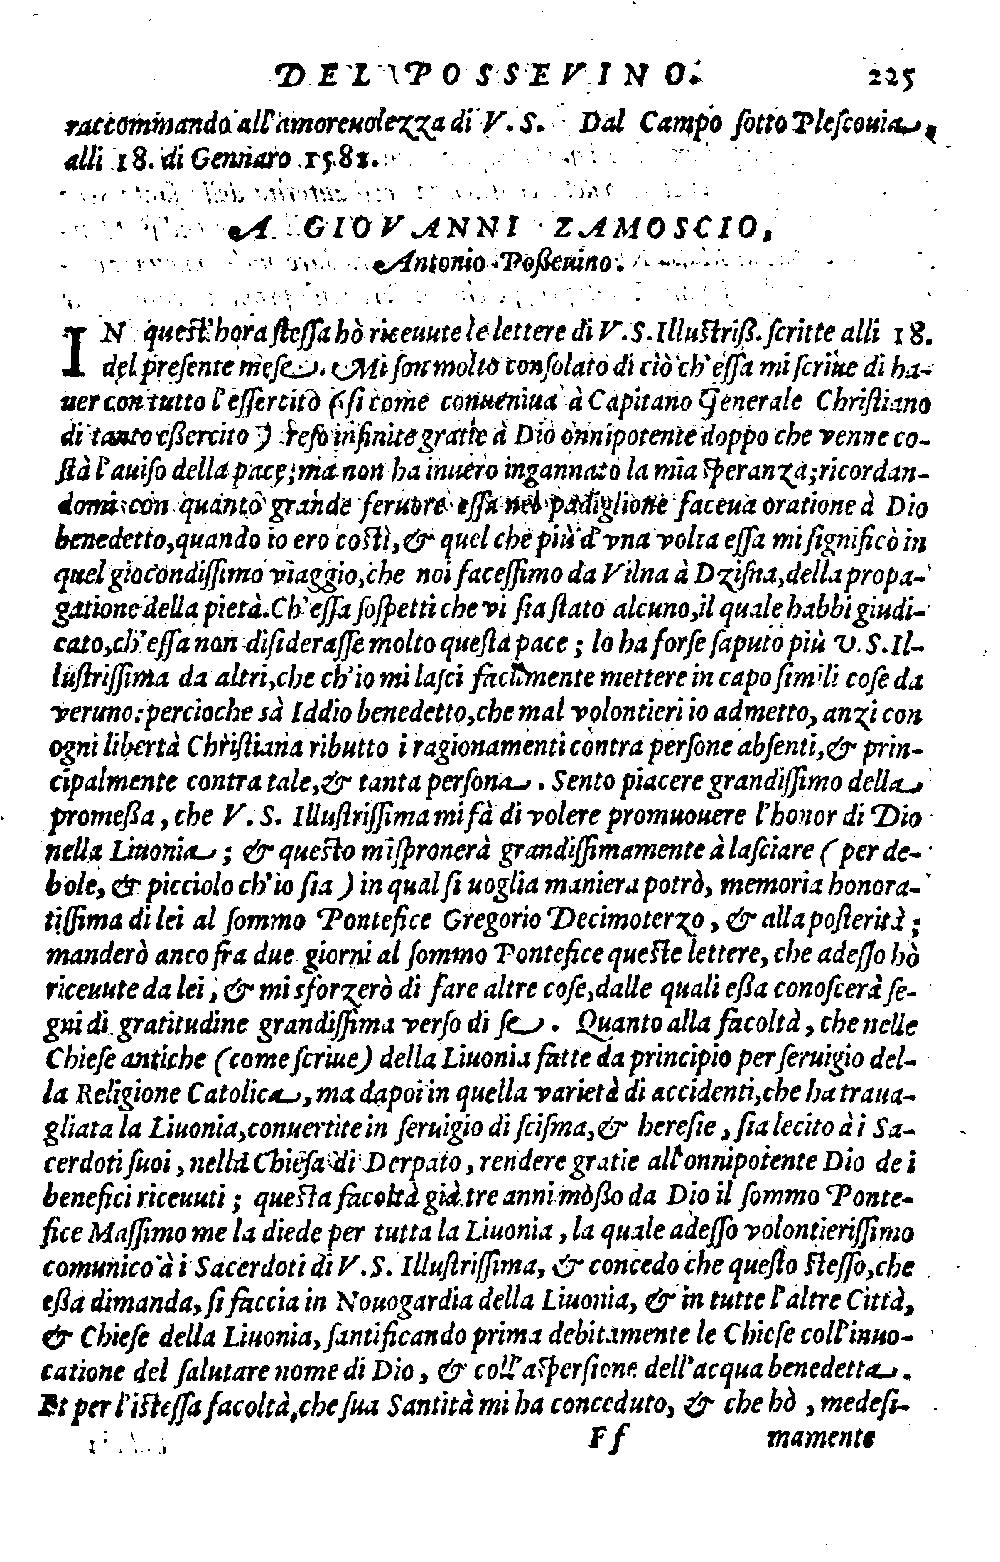 DEL POSSEVINO. 225
raccommando all'amoreuolezza di V. S. Dal Campo ſotto Pleſcouia,
alli 18. di Gennaro 1582.
A GIOVANNI ZAMOSCIO,
Antonio Poßeuino.
IN queſt'hora ſteſſa hò riceuute le lettere di V. S. Illuſtriß. ſcritte alli 18.
del preſente meſe. Mi ſon molto conſolato di ciò ch'eſſa mi ſcriue di ha-
uer con tutto l'eſſercito (ſi come conueniua à Capitano Generale Chriſtiano
di tanto eßercito) reſo infinite gratie à Dio onnipotente doppo che venne co-
ſtà l'auiſo della pace; ma non ha inuero ingannato la mia ſperanza; ricordan-
domi con quanto grande feruore eſſa nel padiglione faceua oratione à Dio
benedetto, quando io ero coſtì, & quel che più d'vna volta eſſa mi ſignificò in
quel giocondiſſimo viaggio, che noi faceſſimo da Vilna à Dziſna, della propa-
gatione della pietà. Ch'eſſa ſoſpetti che vi ſia ſtato alcuno, il quale habbi giudi-
cato, ch'eſſa non diſideraſſe molto queſta pace; lo ha forſe ſaputo più V. S. Il-
luſtriſſima da altri, che ch'io mi laſci facilmente mettere in capo ſimili coſe da
veruno: percioche sà Iddio benedetto, che mal volontieri io admetto, anzi con
ogni libertà Chriſtiana ributto i ragionamenti contra perſone abſenti, & prin-
cipalmente contra tale, & tanta perſona. Sento piacere grandiſſimo della
promeßa, che V. S. Illuſtriſſima mi fà di volere promuouere l'honor di Dio
nella Liuonia; & queſto mi ſpronerà grandiſſimamente à laſciare (per de-
bole, & picciolo ch'io ſia) in qual ſi uoglia maniera potrò, memoria honora-
tiſſima di lei al ſommo Pontefice Gregorio Decimoterzo, & alla poſterità;
manderò anco fra due giorni al ſommo Pontefice queſte lettere, che adeſſo hò
riceuute da lei, & mi sforzerò di fare altre coſe, dalle quali eßa conoſcerà ſe-
gni di gratitudine grandiſſima verſo di ſe. Quanto alla facoltà, che nelle
Chieſe antiche (come ſcriue) della Liuonia fatte da principio per ſeruigio del-
la Religione Catolica, ma dapoi in quella varietà di accidenti, che ha traua-
gliata la Liuonia, conuertite in ſeruigio di ſciſma, & hereſie, ſia lecito à i Sa-
cerdoti ſuoi, nella Chieſa di Derpato, rendere gratie all'onnipotente Dio de i
benefici riceuuti; queſta facoltà già tre anni moßo da Dio il ſommo Ponte-
fice Maſſimo me la diede per tutta la Liuonia, la quale adeſſo volontieriſſimo
comunico à i Sacerdoti di V. S. Illuſtriſſima, & concedo che queſto ſteſſo, che
eßa dimanda, ſi faccia in Nouogardia della Liuonia, & in tutte l'altre Città,
& Chieſe della Liuonia, ſantificando prima debitamente le Chieſe coll'inuo-
catione del ſalutare nome di Dio, & coll'aſperſione dell'acqua benedetta.
Et per l'iſteſſa facoltà, che ſua Santità mi ha conceduto, & che hò, medeſi-
Ff mamente